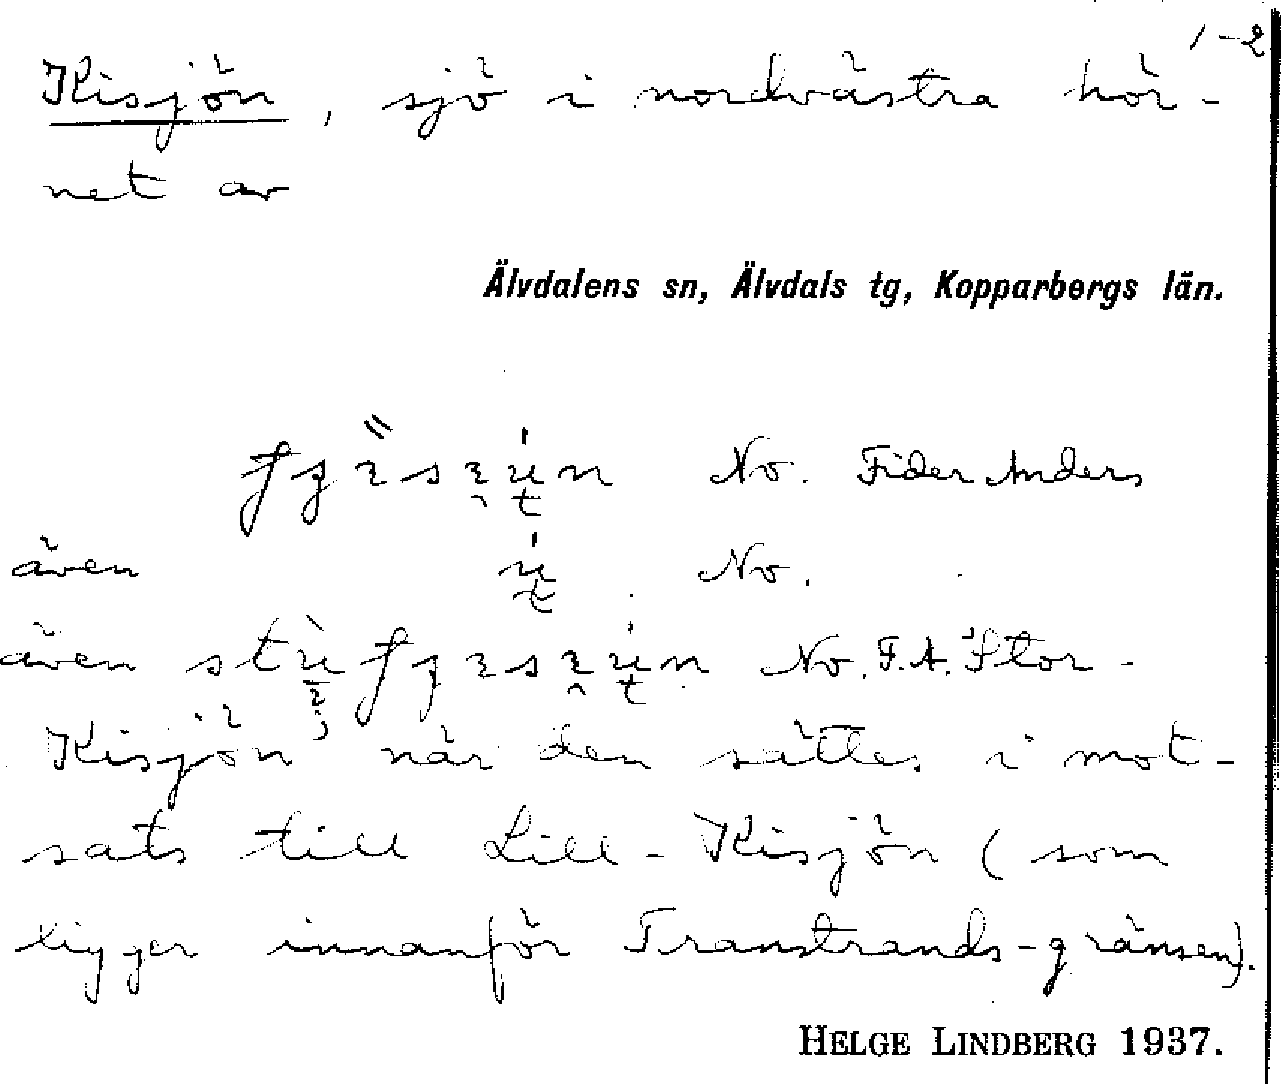 1-2
Kisjön, sjö i nordvästra hör-
net av
Älvdalens sn, Älvdals tg, Kopparbergs län.
No. Fider Anders
även No.
även No. F.A. Stor-
Kisjön när den sättes i mot-
sats till Lill-Kisjön (som
ligger innanför Transtrands-gränsen).
HELGE LINDBERG 1937.